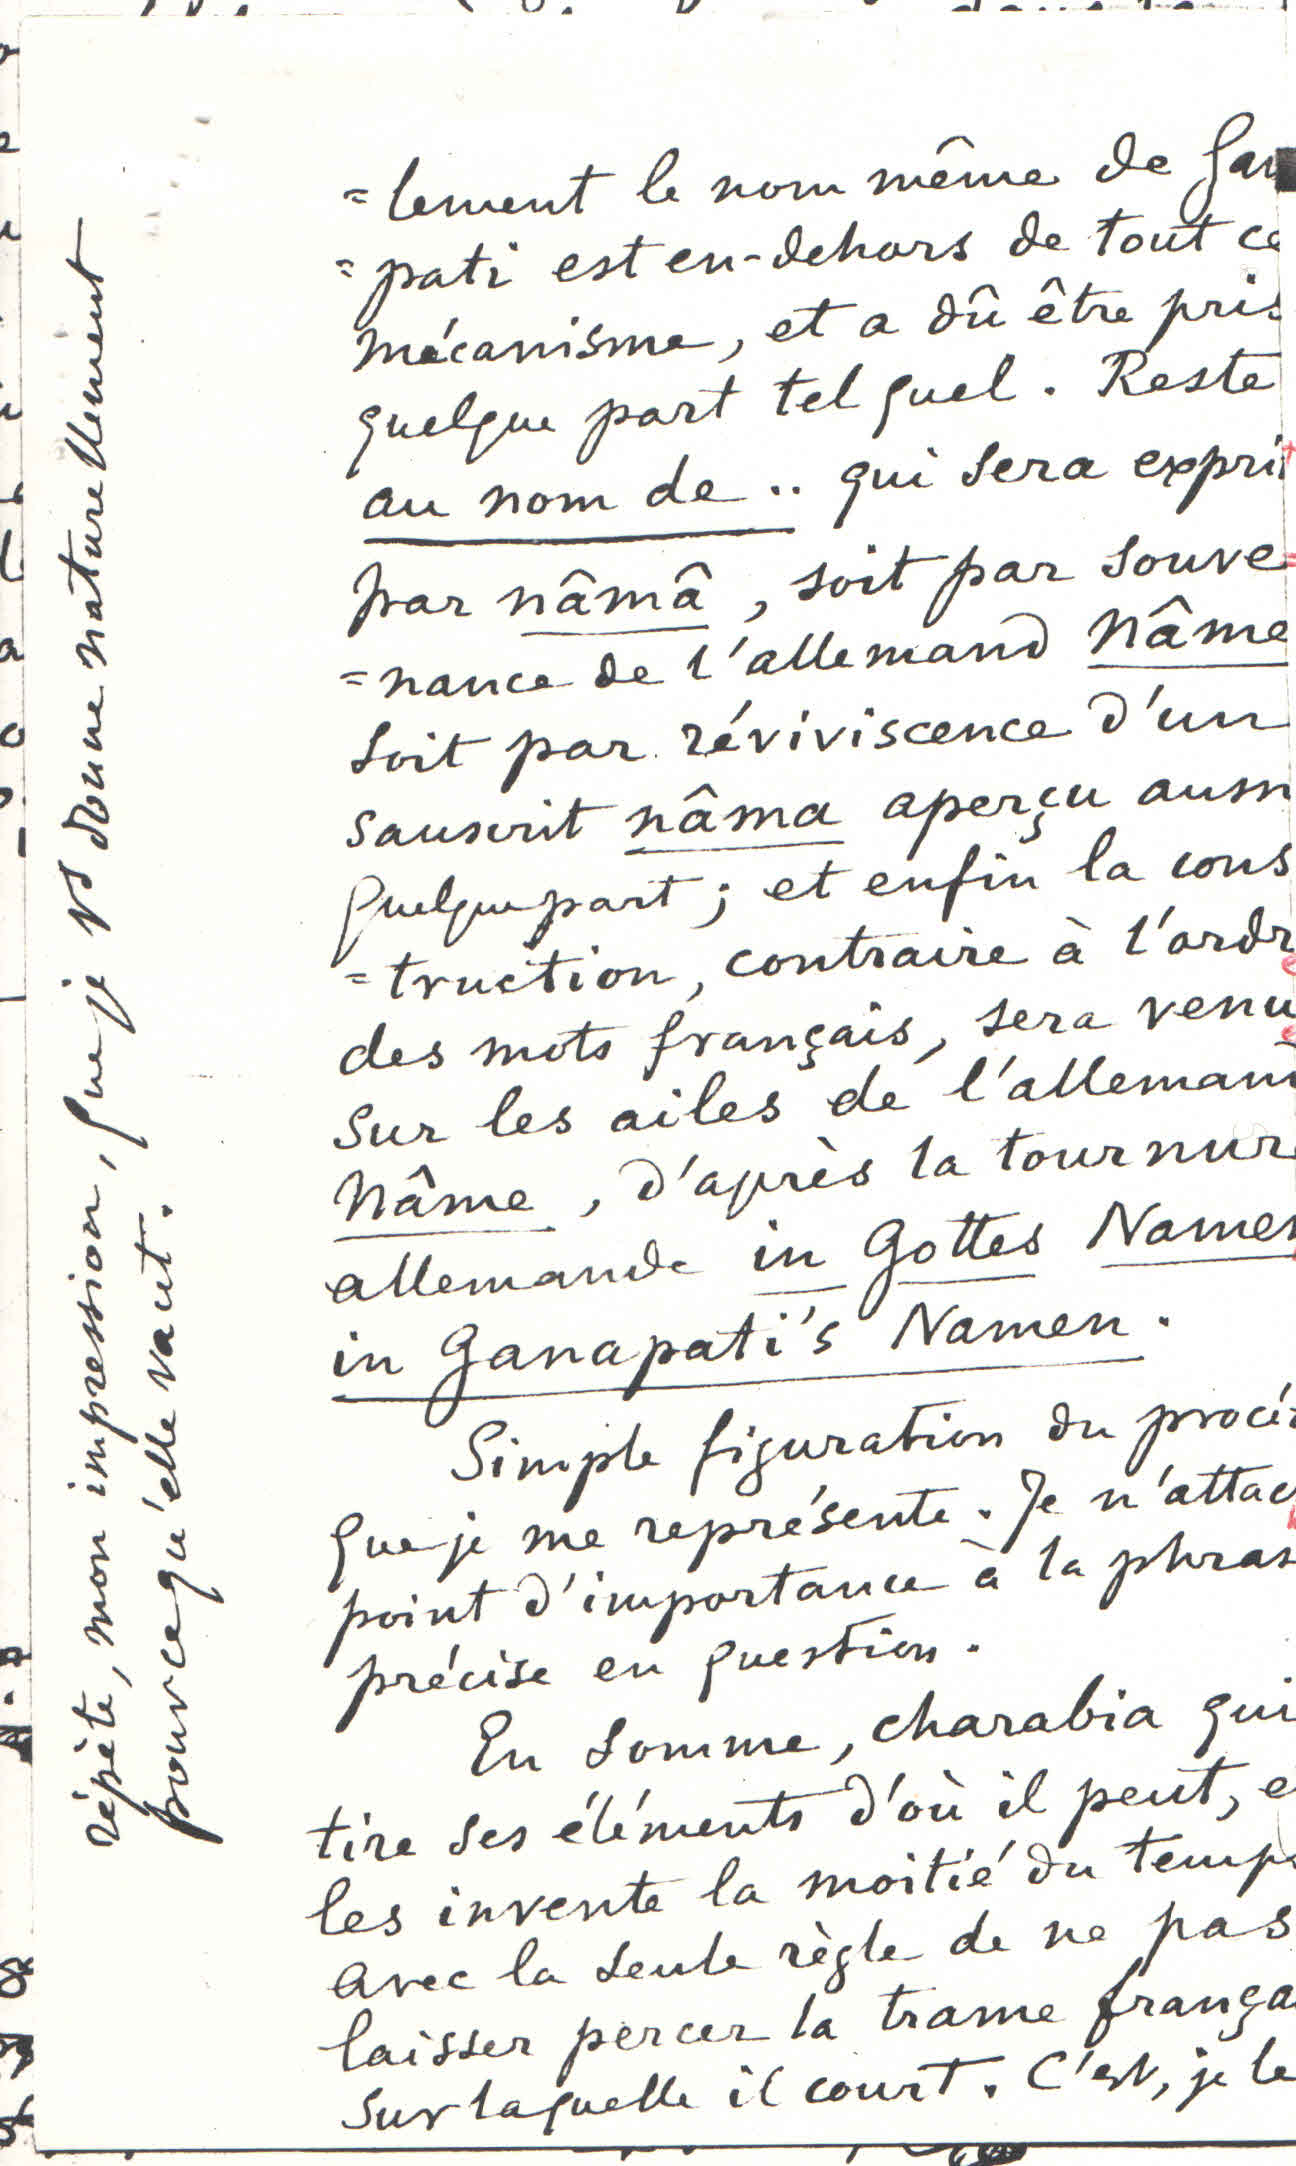 =lement le nom même de Gan
=pati est en-dehors de tout ce
mécanisme, et a dû être pris
quelque part tel quel. Reste
au nom de .. qui sera expri
par nâmâ, soit par souve
=nance de l'allemand Nâme
soit par réviviscence d'un
sanscrit nâma aperçu aussi
quelque part; et enfin la cons
=truction, contraire à l'ordr
des mots français, sera venu
sur les ailes de l'allemand
Nâme, d'après la tournure
allemande in Gottes Namen
in Ganapati's Namen.
Simple figuration du procé
que je me représente. Je n'attac
point d'importance à la phras
précise en question.
En somme, charabia qui
tire ses éléments d'où il peut, e
les invente la moitié du temps
avec la seule règle de ne pas
laisser percer la trame frança
sur laquelle il court. C'est, je le
répète, mon impression, que je vs donne naturellement
pour ce qu'elle vaut.